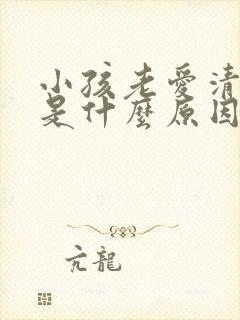 小孩老愛清
是什麼原因
亢龍